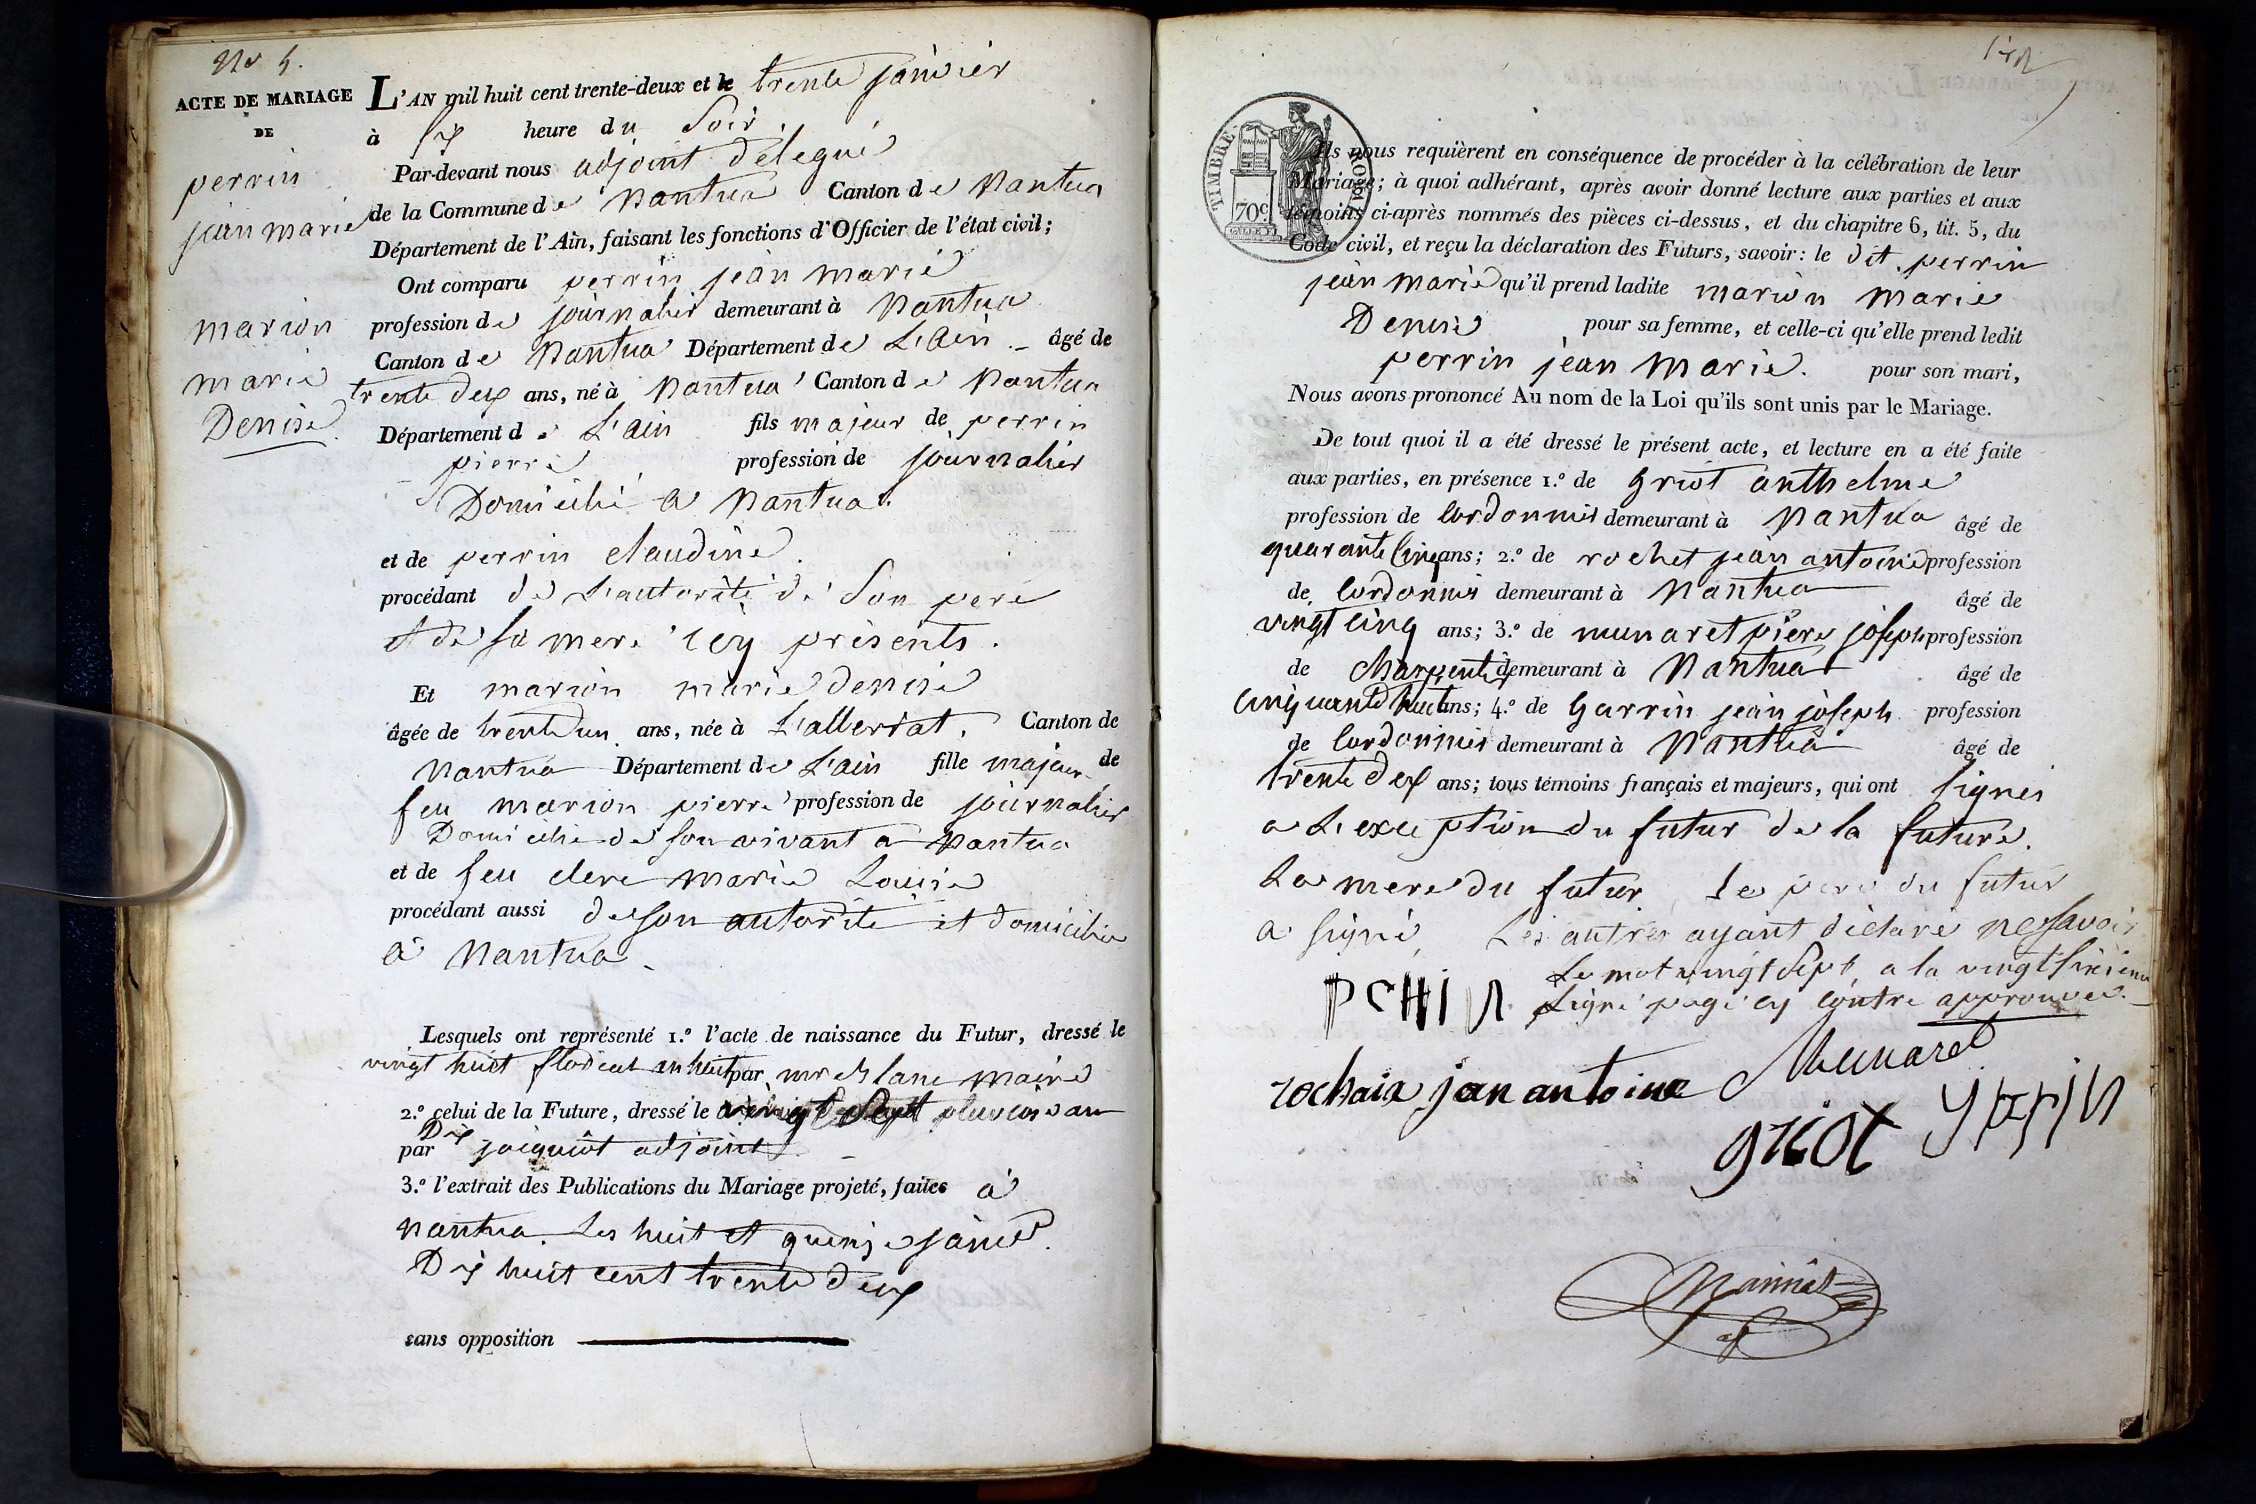 No 5.
ACTE DE MARIAGE
DE
perrin
jean marie
marion
marie
Denise
L'AN mil huit cent trente-deux et le trente janvier
à six heure du Soir.
Par-devant nous adjoint délegué
de la Commune de Nantua Canton de Nantua
Département de l'Ain, faisant les fonctions d'Officier de l'état civil;
Ont comparu perrin jean marie
profession de journalier demeurant à Nantua
Canton de Nantua Département de L'Ain - âgé de
trente deux ans, né à Nantua Canton de Nantua
Département de L'ain fils majeur de perrin
pierre profession de journalier
Domicilié a Nantua.
et de perrin claudine.
procédant de L'autorité de Son pere
et de sa mere icy présents.
Et marion marie denise
âgée de trente un ans, née à L'allleriat, Canton de
Nantua Département de L'ain fille majeur de
feu marion pierre profession de journalier
Domicilié de son vivant a Nantua
et de feu clerc marie Louise
procédant aussi de son autorité et domicilié
à Nantua.
Lesquels ont représenté 1.º l'acte de naissance du Futur, dressé le
vingt huit floréal an huit par mr maire
2.º celui de la Future, dressé le vingt Sept pluviose an
Dix
par adjoint
3.º l'extrait des Publications du Mariage projeté, faites à
Nantua. Les huit et quinze janvier.
Dix huit cent trente deux
sans opposition
TIMBRE ROYAL
70c
Ils nous requièrent en conséquence de procéder à la célébration de leur
Mariage; à quoi adhérant, après avoir donné lecture aux parties et aux
témoins ci-après nommés des pièces ci-dessus, et du chapitre 6, tit. 5, du
Code civil, et reçu la déclaration des Futurs, savoir: le dit perrin
jean marie qu'il prend ladite marion marie
Denise pour sa femme, et celle-ci qu'elle prend ledit
perrin jean marie. pour son mari,
Nous avons prononcé Au nom de la Loi qu'ils sont unis par le Mariage.
De tout quoi il a été dressé le présent acte, et lecture en a été faite
aux parties, en présence 1.º de Griot anthelme
profession de Cordonnier demeurant à Nantua âgé de
quarante Cinq ans; 2.º de rochet jean antoine profession
de Cordonnier demeurant à Nantua âgé de
vingt cinq ans; 3.º de munaret pierre joseph profession
de Charpentier demeurant à Nantua âgé de
Cinquante huit ans; 4.º de Garrin jean joseph profession
de Cordonnier demeurant à Nantua âgé de
trente deux ans; tous témoins français et majeurs, qui ont signés
a L'exception du futur de la future.
La mere du futur Le pere du futur
a signé, Les autres ayant déclaré ne savoir
Le mot vingt Sept a la vingt Sixieme
Ligne page cy contre approuvée.
Munaret
rochaix jan antoine
griot